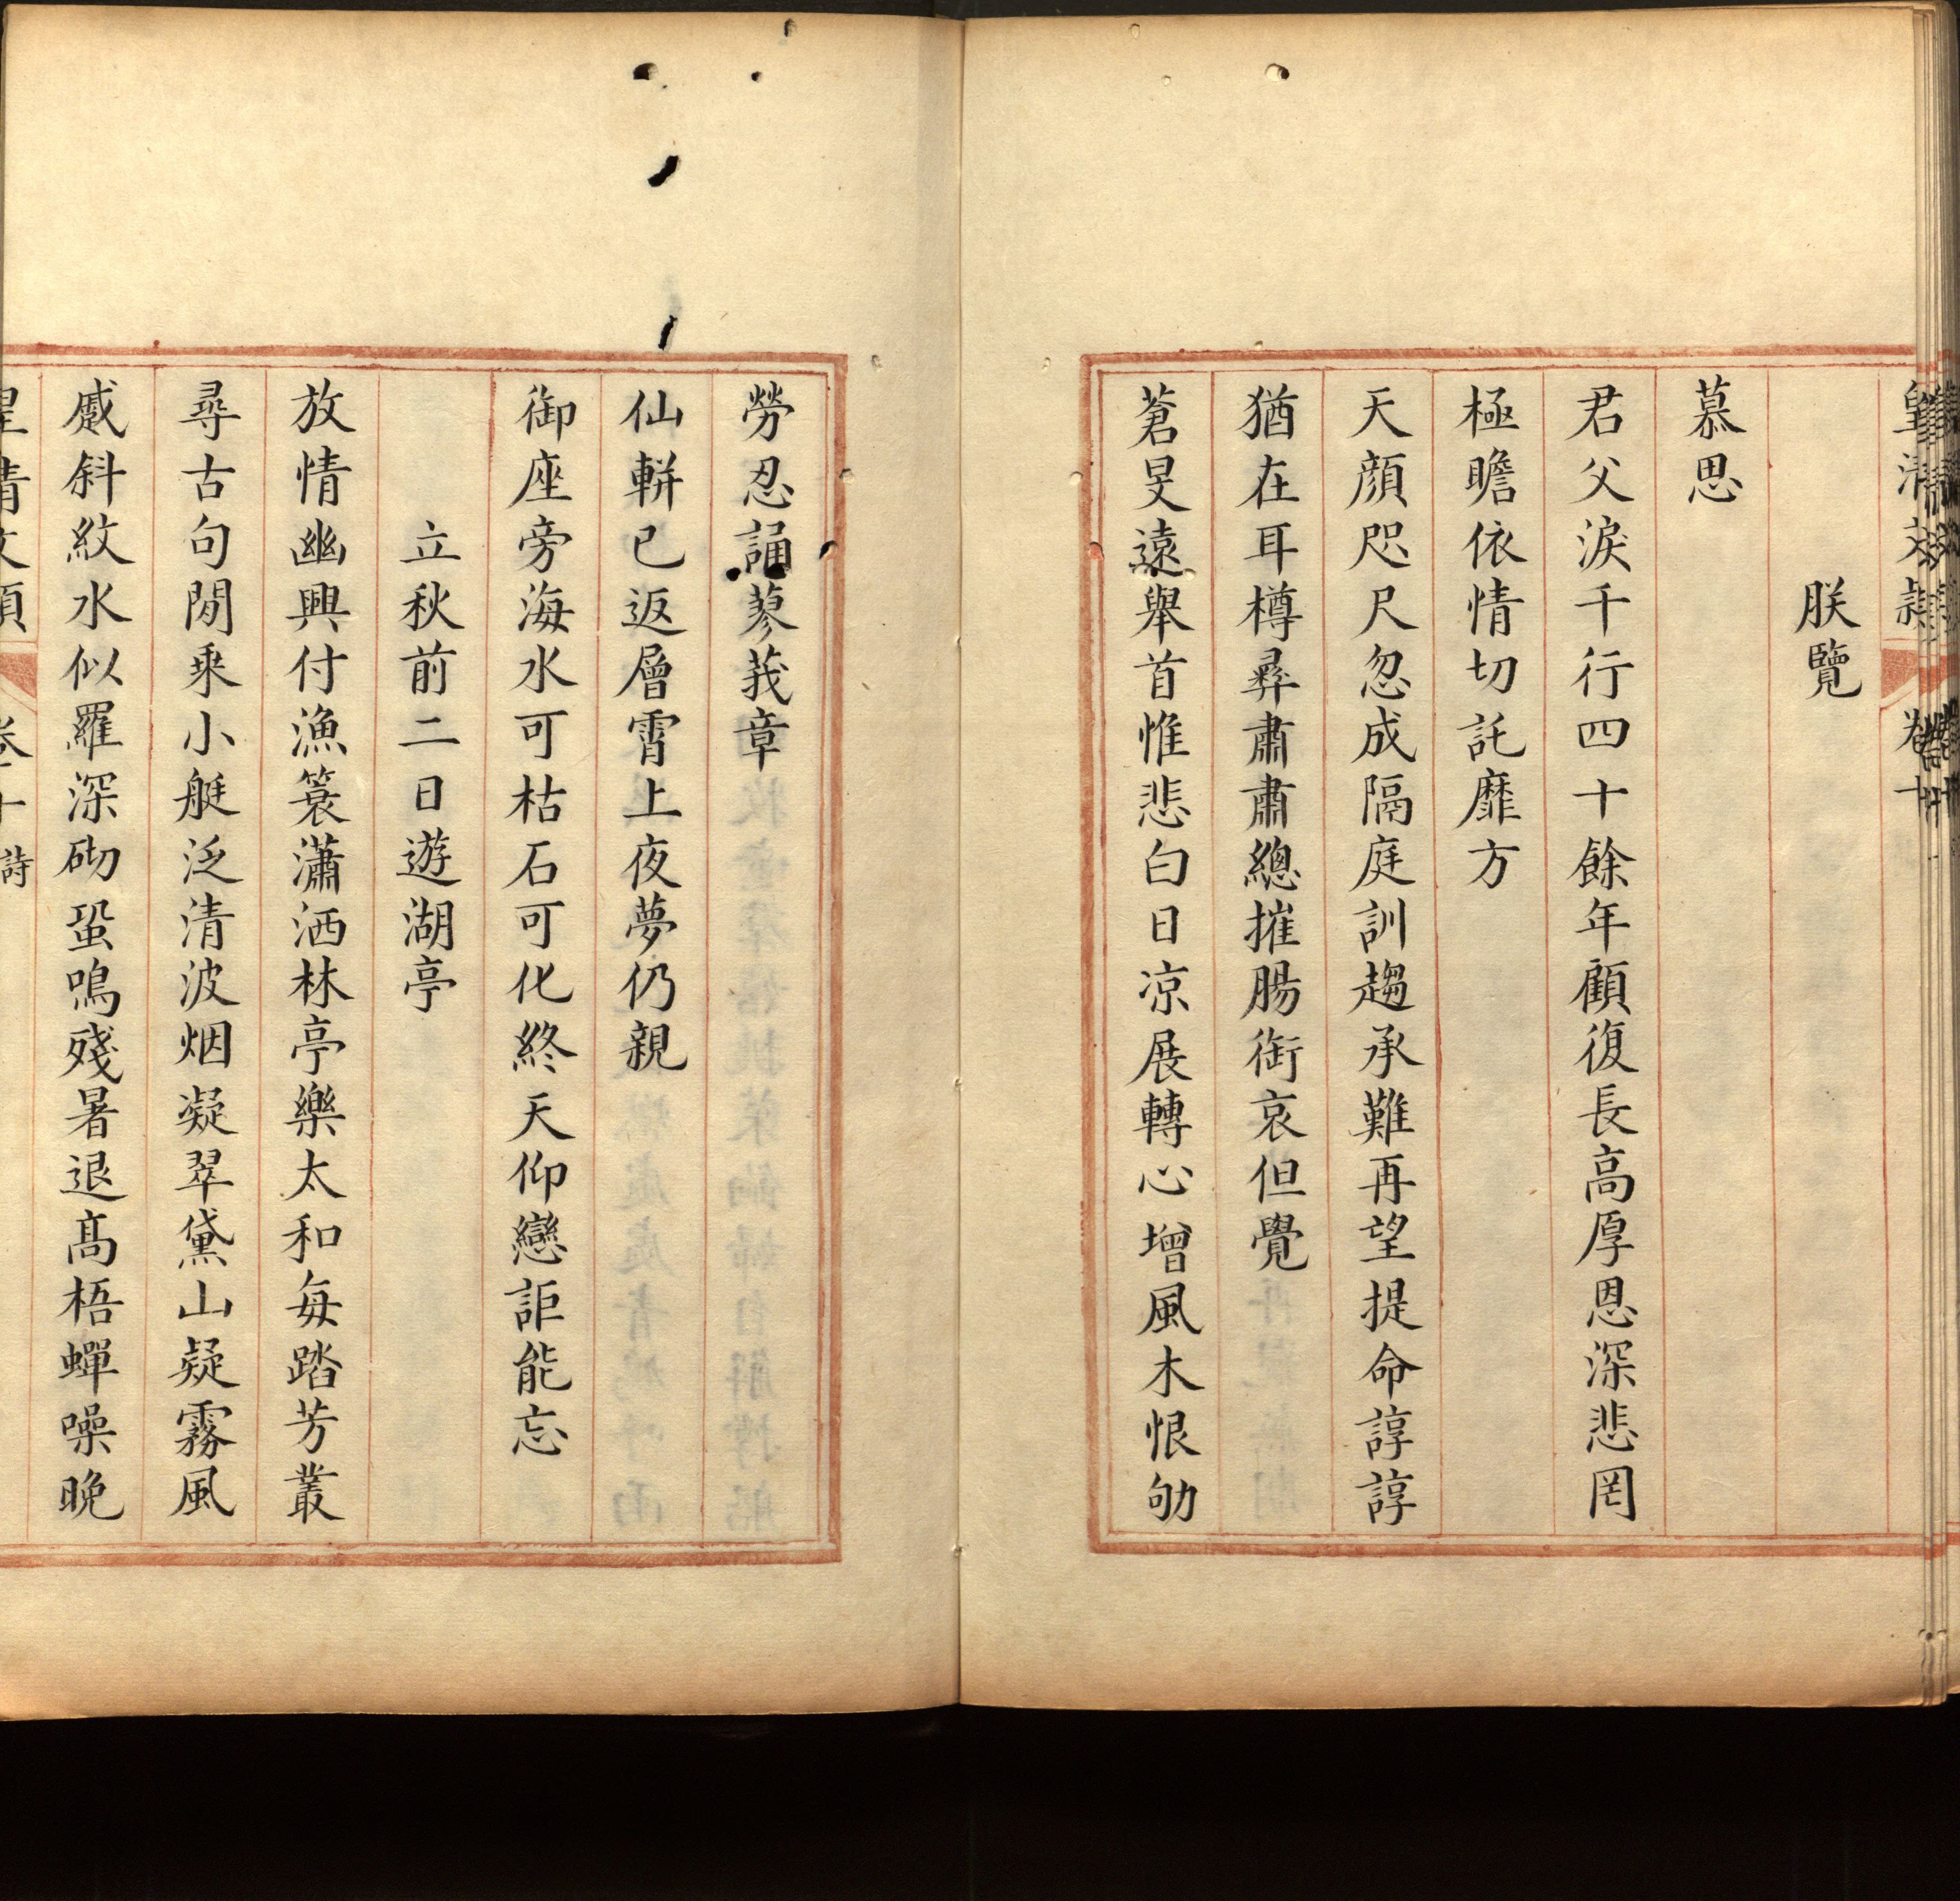 皇清文穎 卷十
朕覽
慕思
君父淚千行四十餘年顧復長高厚恩深悲罔
極瞻依情切託靡方
天顏咫尺忽成隔庭訓趨承難再望提命諄諄
猶在耳樽彝肅肅總摧腸銜哀但覺
蒼旻遠舉首惟悲白日凉展轉心增風木恨劬
勞忍誦蓼莪章
仙軿已返層霄上夜夢仍親
御座旁海水可枯石可化終天仰戀詎能忘
立秋前二日遊湖亭
放情幽興付漁簑瀟洒林亭樂太和每踏芳叢
尋古句閒乗小艇泛清波烟凝翠黛山疑霧風
蹙斜紋水似羅深砌蛩鳴殘暑退高梧蟬噪晚
皇清文穎 卷十 詩